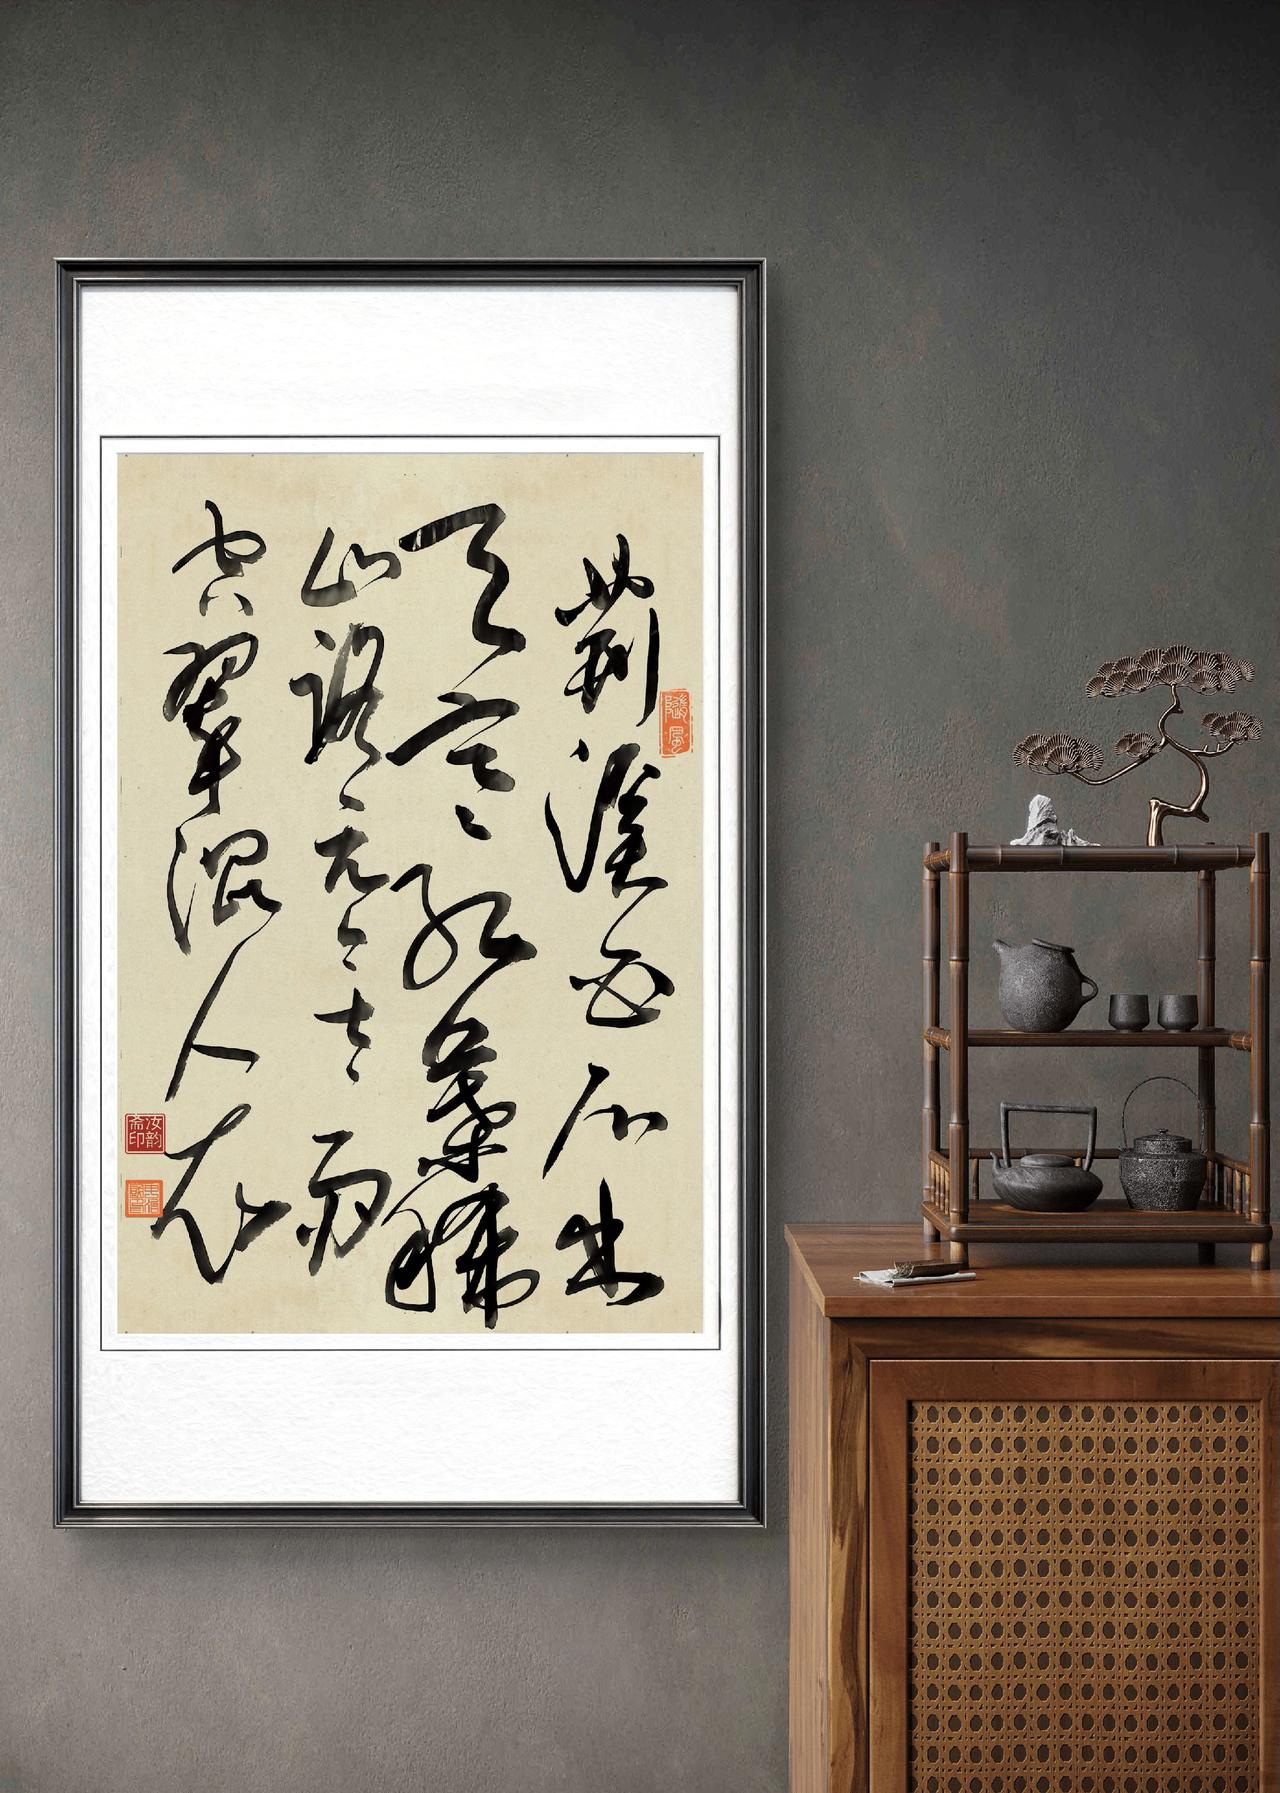 荆溪白石出
隨風
天寒红葉稀
山路元无雨
空翠湿人衣
汝韵斋印